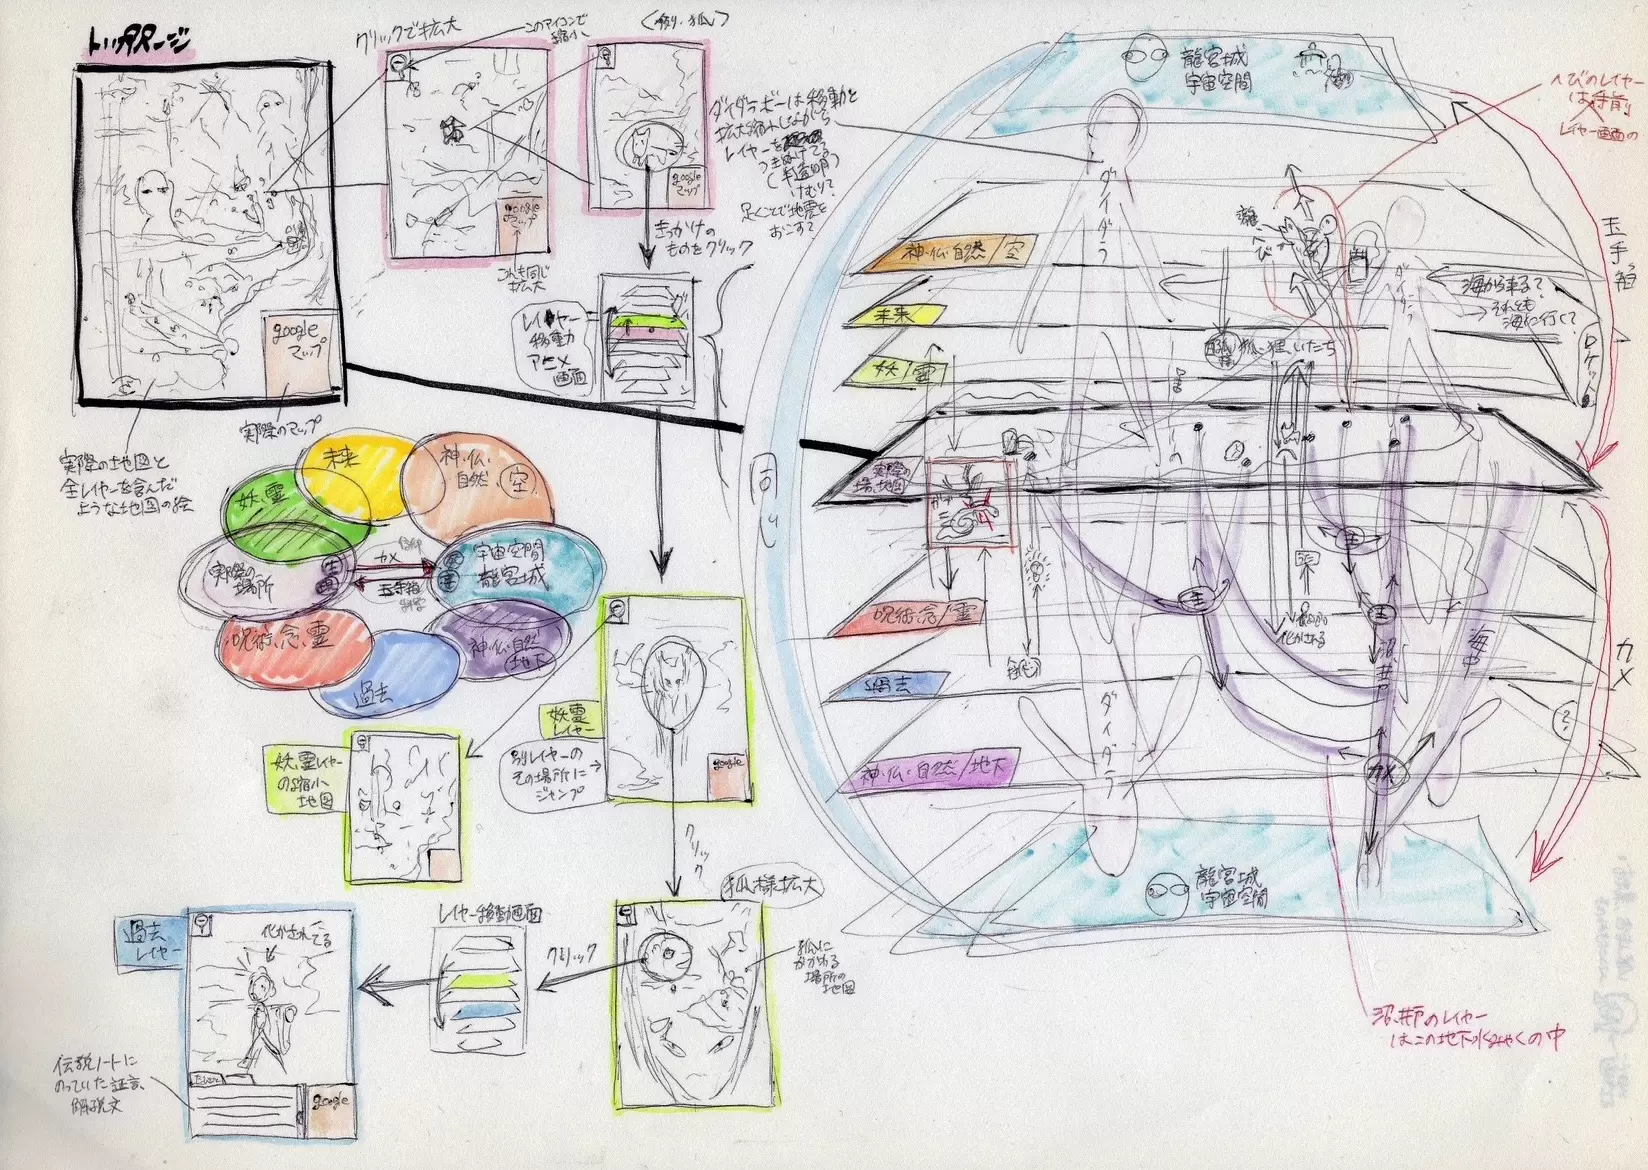 トップページ
クリックで拡大
このアイコンで
縮小
(例.狐)
google
マップ
実際のマップ
実際の地図と
全レイヤーを含んだ
ような地図の絵
google
マップ
これも同じ
拡大
google
マップ
きっかけの
ものをクリック
レイヤー
移動
アニメ
画面
ダイダラボーは移動と
拡大縮小しながら
レイヤーを
つきぬけてる
(半透明)
足くことで地震を
おこす?
未来
神・仏・
自然
空
妖、霊
実際の
場所
カメ
玉手箱
宇宙空間
龍宮城
呪術、念、霊
過去
神・仏・自然
地下
妖霊
レイヤー
別レイヤーの
その場所に
ジャンプ
google
妖、霊レイヤー
の縮小
地図
クリック
狐様拡大
狐に
かかわる
場所の
地図
クリック
レイヤー移動画面
過去
レイヤー
化かされてる
google
伝説ノートに
のっていた証言、
解説文
龍宮城
宇宙空間
へびのレイヤー
は手前
レイヤー画面の
玉手箱
ダイダラ
神・仏・自然/空
未来
妖/霊
滝
へび
ダイダラ
海から来る?
それとも
海に行く?
ロケット
狐、狸、いたち
実際の
場、地図
同じ
呪術、念/霊
過去
神・仏・自然/地下
主
主
主
化かされる
沼、井戸
海中
カメ
カメ
?
ダイダラ
龍宮城
宇宙空間
沼、井戸のレイヤー
はこの地下水みゃくの中